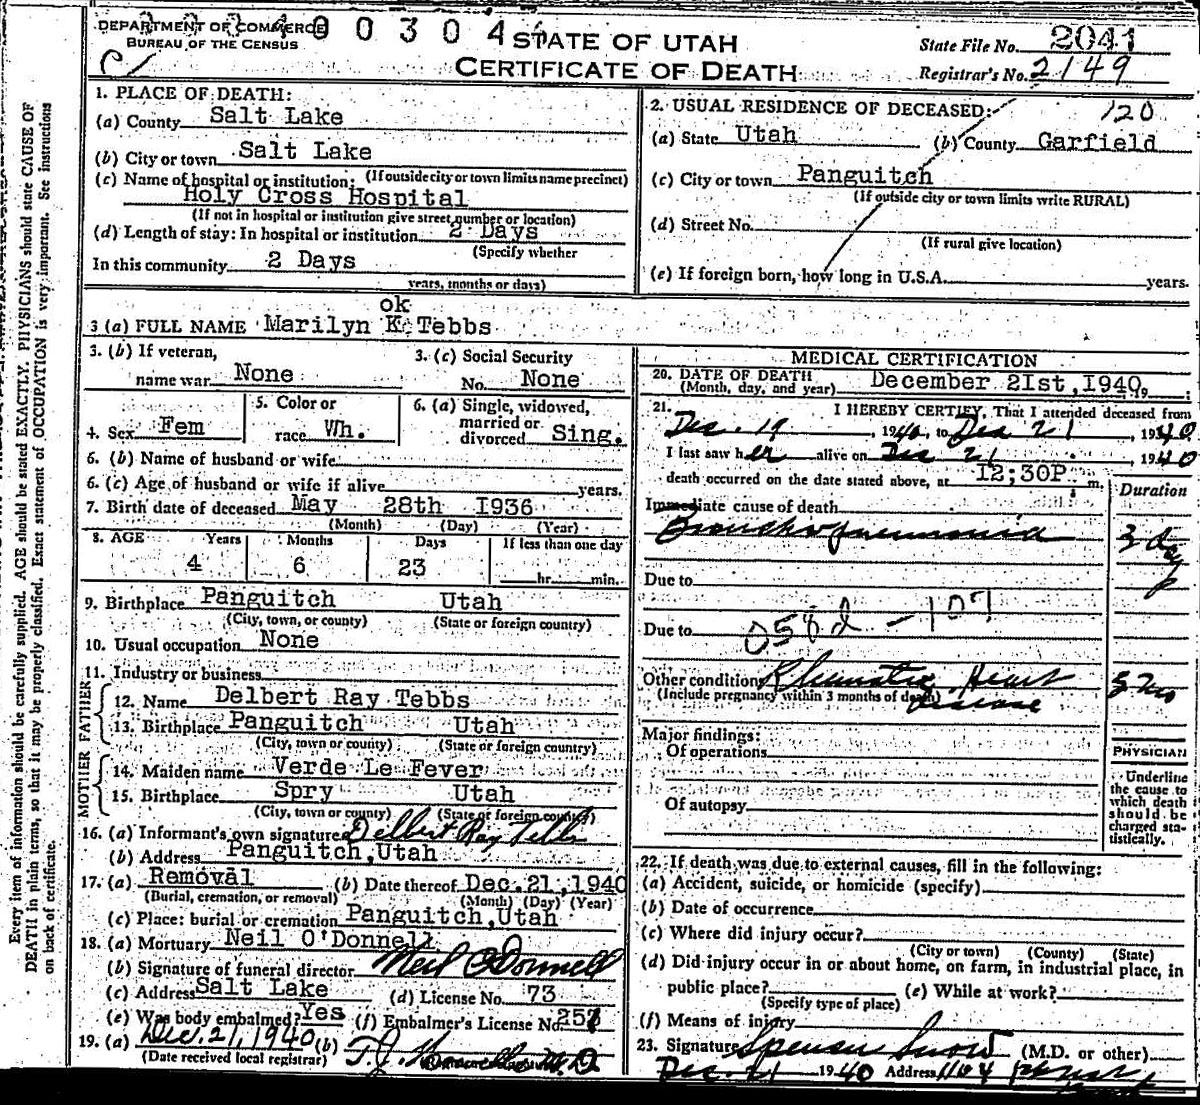 DEPARTMENT OF COMMERCE
BUREAU OF THE CENSUS
STATE OF UTAH
CERTIFICATE OF DEATH
State File No. 2041
Registrar's No. 2149
Every item of information should be carefully supplied. AGE should be stated EXACTLY. PHYSICIANS should state CAUSE OF
DEATH in plain terms, so that it may be properly classified. Exact statement of OCCUPATION is very important. See instructions
on back of certificate.
1. PLACE OF DEATH:
(a) County Salt Lake
(b) City or town Salt Lake
(If outside city or town limits name precinct)
(c) Name of hospital or institution:
Holy Cross Hospital
(If not in hospital or institution give street number or location)
(d) Length of stay: In hospital or institution 2 Days
(Specify whether
In this community 2 Days
years, months or days)
2. USUAL RESIDENCE OF DECEASED: 120
(a) State Utah (b) County Garfield
(c) City or town Panguitch
(If outside city or town limits write RURAL)
(d) Street No.
(If rural give location)
(e) If foreign born, how long in U.S.A. years.
ok
3 (a) FULL NAME Marilyn K Tebbs
3. (b) If veteran,
name war None
3. (c) Social Security
No. None
4. Sex Fem
5. Color or
race Wh.
6. (a) Single, widowed,
married or
divorced Sing.
6. (b) Name of husband or wife
6. (c) Age of husband or wife if alive years.
7. Birth date of deceased May 28th 1936
(Month) (Day) (Year)
8. AGE Years Months Days If less than one day
4 6 23 hr. min.
9. Birthplace Panguitch Utah
(City, town, or county) (State or foreign country)
10. Usual occupation None
11. Industry or business
FATHER
12. Name Delbert Ray Tebbs
13. Birthplace Panguitch Utah
(City, town or county) (State or foreign country)
MOTHER
14. Maiden name Verde Le Fever
15. Birthplace Spry Utah
(City, town or county) (State or foreign country)
16. (a) Informant's own signature Delbert Ray Tebbs
(b) Address Panguitch, Utah
17. (a) Removal (b) Date thereof Dec. 21, 1940
(Burial, cremation, or removal) (Month) (Day) (Year)
(c) Place: burial or cremation Panguitch, Utah
18. (a) Mortuary Neil O'Donnell
(b) Signature of funeral director Neil O'Donnell
(c) Address Salt Lake (d) License No. 73
(e) Was body embalmed? Yes (f) Embalmer's License No.
19. (a) Dec. 21, 1940 (b) T.J. M.D.
(Date received local registrar)
MEDICAL CERTIFICATION
20. DATE OF DEATH
(Month, day, and year) December 21st, 1940
21. I HEREBY CERTIFY, That I attended deceased from
Dec. 19, 1940, to Dec 21, 1940
I last saw her alive on Dec 21 1940
death occurred on the date stated above, at 12;30P m.
Duration
Immediate cause of death
Bronchopneumonia 3 days
Due to
Due to 058d - 107
Other condition Rheumatic Heart
(Include pregnancy within 3 months of death) Disease
Major findings:
Of operations
Of autopsy
PHYSICIAN
Underline
the cause to
which death
should be
charged sta-
tistically.
22. If death was due to external causes, fill in the following:
(a) Accident, suicide, or homicide (specify)
(b) Date of occurrence
(c) Where did injury occur?
(City or town) (County) (State)
(d) Did injury occur in or about home, on farm, in industrial place, in
public place? (e) While at work?
(Specify type of place)
(f) Means of injury
23. Signature Spencer Snow (M.D. or other)
Dec. 21 1940 Address